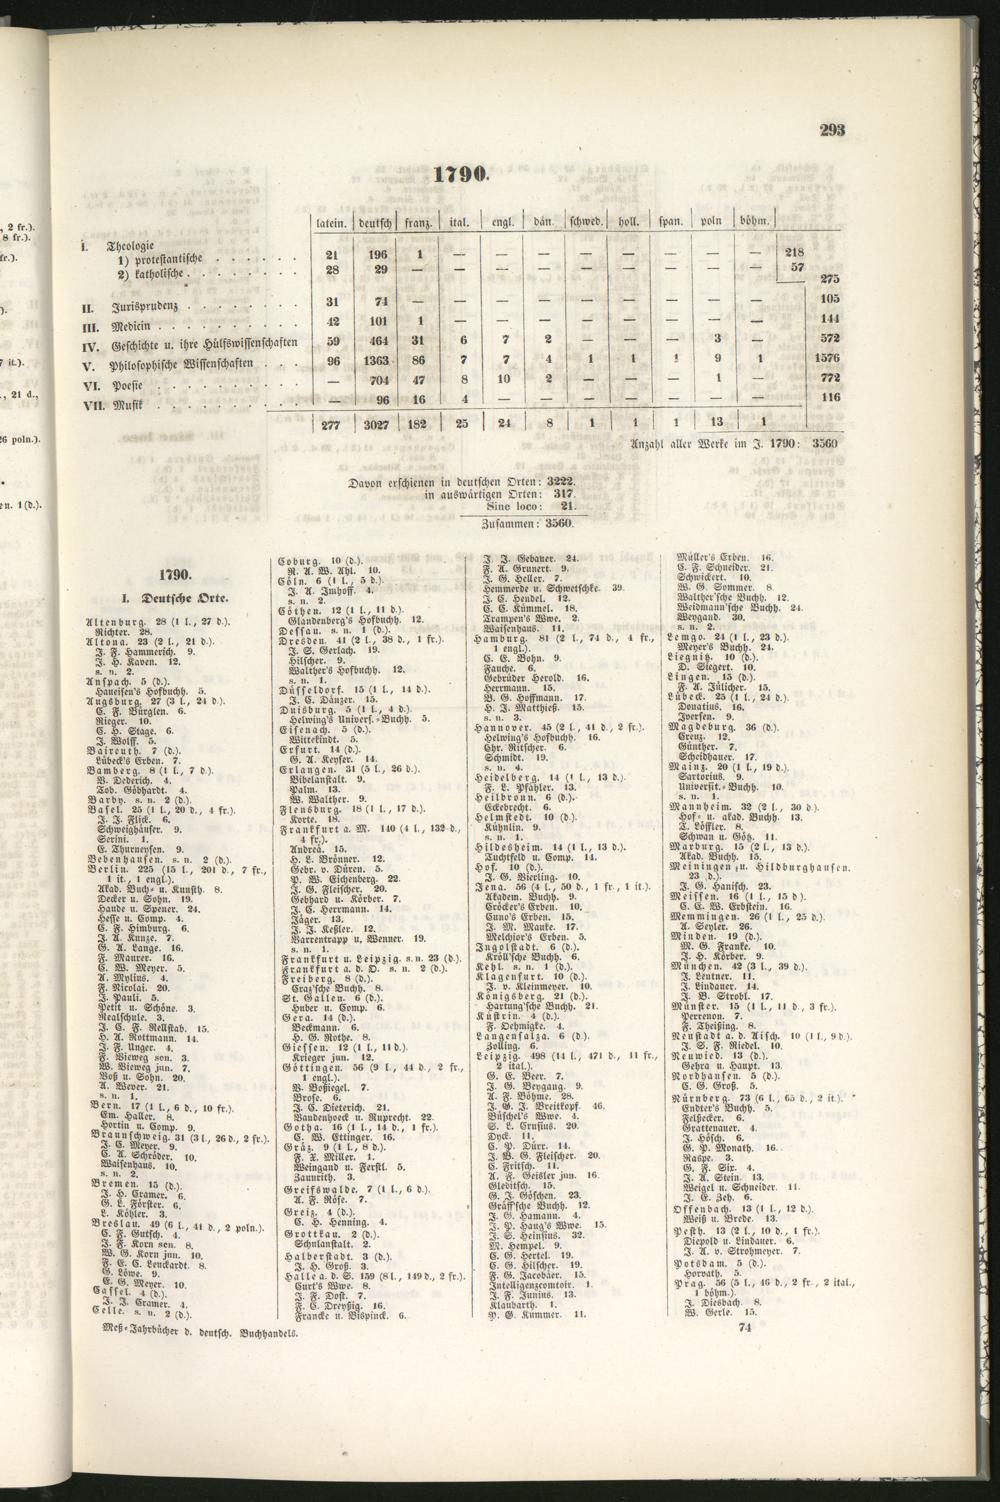 , 2 fr.).
8 fr.).
fr.).
).
7 it.).
, 21 d.,
26 poln.).
en. 1 (d.).
293
1790.
latein. deutsch franz. ital. engl. dän. schwed. holl. span. poln böhm.
I. Theologie
1) protestantische . . . . . . 21 196 1 — — — — — — — — 218
2) katholische . . . . . . . 28 29 — — — — — — — — — 57
275
II. Jurisprudenz . . . . . . . . 31 74 — — — — — — — — — 105
III. Medicin . . . . . . . . . . 42 101 1 — — — — — — — — 144
IV. Geschichte u. ihre Hülfswissenschaften 59 464 31 6 7 2 — — — 3 — 572
V. Philosophische Wissenschaften . . . 96 1363 86 7 7 4 1 1 1 9 1 1576
VI. Poesie . . . . . . . . . . — 704 47 8 10 2 — — — 1 — 772
VII. Musik . . . . . . . . . . — 96 16 4 — — — — — — — 116
277 3027 182 25 24 8 1 1 1 13 1
Anzahl aller Werke im J. 1790: 3560
Davon erschienen in deutschen Orten: 3222.
in auswärtigen Orten: 317.
Sine loco: 21.
Zusammen: 3560.
1790.
I. Deutsche Orte.
Altenburg. 28 (1 l., 27 d.).
Richter. 28.
Altona. 23 (2 l., 21 d.).
J. F. Hammerich. 9.
J. H. Kaven. 12.
s. n. 2.
Anspach. 5 (d.).
Haueisen's Hofbuchh. 5.
Augsburg. 27 (3 l., 24 d.).
C. F. Bürglen. 6.
Rieger. 10.
C. H. Stage. 6.
J. Wolff. 5.
Baireuth. 7 (d.).
Lübeck's Erben. 7.
Bamberg. 8 (1 l., 7 d.).
V. Dederich. 4.
Tob. Göbhardt. 4.
Barby. s. n. 2 (d.).
Basel. 25 (1 l., 20 d., 4 fr.).
J. J. Flick. 6.
Schweighäuser. 9.
Serini. 1.
E. Thurneysen. 9.
Bebenhausen. s. n. 2 (d.).
Berlin. 225 (15 l., 201 d., 7 fr.,
1 it., 1 engl.).
Akad. Buch= u. Kunsth. 8.
Decker u. Sohn. 19.
Haude u. Spener. 24.
Hesse u. Comp. 4.
C. F. Himburg. 6.
J. A. Kunze. 7.
G. A. Lange. 16.
F. Maurer. 16.
C. W. Meyer. 5.
A. Mylius. 4.
F. Nicolai. 20.
J. Pauli. 5.
Petit u. Schöne. 3.
Realschule. 3.
J. C. F. Rellstab. 15.
H. A. Rottmann. 14.
J. F. Unger. 4.
F. Vieweg sen. 3.
W. Vieweg jun. 7.
Voß u. Sohn. 20.
A. Wever. 21.
s. n. 1.
Bern. 17 (1 l., 6 d., 10 fr.).
Em. Haller. 8.
Hortin u. Comp. 9.
Braunschweig. 31 (3 l., 26 d., 2 fr.).
J. C. Meyer. 9.
C. A. Schröder. 10.
Waisenhaus. 10.
s. n. 2.
Bremen. 15 (d.).
J. H. Cramer. 6.
G. L. Förster. 6.
L. Köhler. 3.
Breslau. 49 (6 l., 41 d., 2 poln.).
C. F. Gutsch. 4.
J. F. Korn sen. 8.
W. G. Korn jun. 10.
F. E. C. Leuckardt. 8.
G. Löwe. 9.
E. G. Meyer. 10.
Cassel. 4 (d.).
J. J. Cramer. 4.
Celle. s. n. 2 (d.).
Coburg. 10 (d.).
R. A. W. Ahl. 10.
Cöln. 6 (1 l., 5 d.).
J. A. Imhoff. 4.
s. n. 2.
Cöthen. 12 (1 l., 11 d.).
Glandenberg's Hofbuchh. 12.
Dessau. s. n. 1 (d.).
Dresden. 41 (2 l., 38 d., 1 fr.).
J. S. Gerlach. 19.
Hilscher. 9.
Walther's Hofbuchh. 12.
s. n. 1.
Düsseldorf. 15 (1 l., 14 d.).
J. C. Dänzer. 15.
Duisburg. 5 (1 l., 4 d.).
Helwing's Univers.=Buchh. 5.
Eisenach. 5 (d.).
Wittekindt. 5.
Erfurt. 14 (d.).
G. A. Keyser. 14.
Erlangen. 31 (5 l., 26 d.).
Bibelanstalt. 9.
Palm. 13.
W. Walther. 9.
Flensburg. 18 (1 l., 17 d.).
Korte. 18.
Frankfurt a. M. 140 (4 l., 132 d.,
4 fr.).
Andreä. 15.
H. L. Brönner. 12.
Gebr. v. Düren. 5.
P. W. Eichenberg. 22.
J. G. Fleischer. 20.
Gebhard u. Körber. 7.
J. C. Herrmann. 14.
Jäger. 13.
J. J. Keßler. 12.
Varrentrapp u. Wenner. 19.
s. n. 1.
Frankfurt u. Leipzig. s. n. 23 (d.).
Frankfurt a. d. O. s. n. 2 (d.).
Freiberg. 8 (d.).
Craz'sche Buchh. 8.
St. Gallen. 6 (d.).
Huber u. Comp. 6.
Gera. 14 (d.).
Beckmann. 6.
H. G. Rothe. 8.
Giessen. 12 (1 l., 11 d.).
Krieger jun. 12.
Göttingen. 56 (9 l., 44 d., 2 fr.,
1 engl.).
V. Boßiegel. 7.
Brose. 6.
J. C. Dieterich. 21.
Vandenhoeck u. Ruprecht. 22.
Gotha. 16 (1 l., 14 d., 1 fr.).
C. W. Ettinger. 16.
Gräz. 9 (1 l., 8 d.).
F. X. Miller. 1.
Weingand u. Ferstl. 5.
Zaunrith. 3.
Greifswalde. 7 (1 l., 6 d.).
A. F. Röse. 7.
Greiz. 4 (d.).
C. H. Henning. 4.
Grottkau. 2 (d.).
Schulanstalt. 2.
Halberstadt. 3 (d.).
J. H. Groß. 3.
Halle a. d. S. 159 (8 l., 149 d., 2 fr.).
Curt's Wwe. 8.
J. F. Dost. 7.
F. C. Dreyßig. 16.
Francke u. Bispinck. 6.
J. J. Gebauer. 24.
F. A. Grunert. 9.
J. G. Heller. 7.
Hemmerde u. Schwetschke. 39.
J. C. Hendel. 12.
C. C. Kümmel. 18.
Trampen's Wwe. 2.
Waisenhaus. 11.
Hamburg. 81 (2 l., 74 d., 4 fr.,
1 engl.).
C. E. Bohn. 9.
Fauche. 6.
Gebrüder Herold. 16.
Herrmann. 15.
B. G. Hoffmann. 17.
H. J. Matthieß. 15.
s. n. 3.
Hannover. 45 (2 l., 41 d., 2 fr.).
Helwing's Hofbuchh. 16.
Chr. Ritscher. 6.
Schmidt. 19.
s. n. 4.
Heidelberg. 14 (1 l., 13 d.).
F. L. Pfähler. 13.
Heilbronn. 6 (d.).
Eckebrecht. 6.
Helmstedt. 10 (d.).
Kühnlin. 9.
s. n. 1.
Hildesheim. 14 (1 l., 13 d.).
Tuchtfeld u. Comp. 14.
Hof. 10 (d.).
J. G. Vierling. 10.
Jena. 56 (4 l., 50 d., 1 fr., 1 it.).
Akadem. Buchh. 9.
Cröcker's Erben. 10.
Cuno's Erben. 15.
J. M. Mauke. 17.
Melchior's Erben. 5.
Ingolstadt. 6 (d.).
Kröll'sche Buchh. 6.
Kehl. s. n. 1 (d.).
Klagenfurt. 10 (d.).
J. v. Kleinmeyer. 10.
Königsberg. 21 (d.).
Hartung'sche Buchh. 21.
Küstrin. 4 (d.).
F. Oehmigke. 4.
Langensalza. 6 (d.).
Zolling. 6.
Leipzig. 498 (14 l., 471 d., 11 fr.,
2 ital.).
G. E. Beer. 7.
J. G. Beygang. 9.
A. F. Böhme. 28.
J. G. J. Breitkopf. 46.
Büschel's Wwe. 4.
S. L. Crusius. 20.
Dyck. 11.
C. P. Dürr. 14.
J. B. G. Fleischer. 20.
C. Fritsch. 11.
A. F. Geisler jun. 16.
Gleditsch. 15.
G. J. Göschen. 23.
Gräff'sche Buchh. 12.
J. G. Hamann. 4.
J. P. Haug's Wwe. 15.
J. S. Heinsius. 32.
M. Hempel. 9.
C. G. Hertel. 19.
C. G. Hilscher. 19.
F. G. Jacobäer. 15.
Intelligenzcomtoir. 1.
J. F. Junius. 13.
Klaubarth. 1.
P. G. Kummer. 11.
Müller's Erben. 16.
C. F. Schneider. 21.
Schwickert. 10.
W. G. Sommer. 8.
Walther'sche Buchh. 12.
Weidmann'sche Buchh. 24.
Weygand. 30.
s. n. 2.
Lemgo. 24 (1 l., 23 d.).
Meyer's Buchh. 24.
Liegnitz. 10 (d.).
D. Siegert. 10.
Lingen. 15 (d.).
F. A. Jülicher. 15.
Lübeck. 25 (1 l., 24 d.).
Donatius. 16.
Iversen. 9.
Magdeburg. 36 (d.).
Creuz. 12.
Günther. 7.
Scheidhauer. 17.
Mainz. 20 (1 l., 19 d.).
Sartorius. 9.
Universit.=Buchh. 10.
s. n. 1.
Mannheim. 32 (2 l., 30 d.).
Hof= u. akad. Buchh. 13.
T. Löffler. 8.
Schwan u. Götz. 11.
Marburg. 15 (2 l., 13 d.).
Akad. Buchh. 15.
Meiningen u. Hildburghausen.
23 (d.).
J. G. Hanisch. 23.
Meissen. 16 (1 l., 15 d).
C. C. W. Erbstein. 16.
Memmingen. 26 (1 l., 25 d.).
A. Seyler. 26.
Minden. 19 (d.).
M. G. Franke. 10.
J. H. Körber. 9.
München. 42 (3 l., 39 d.).
J. Leutner. 11.
J. Lindauer. 14.
J. B. Strobl. 17.
Münster. 15 (1 l., 11 d., 3 fr.).
Perrenon. 7.
F. Theißing. 8.
Neustadt a. d. Aisch. 10 (1 l., 9 d.).
J. S. F. Riedel. 10.
Neuwied. 13 (d.).
Gehra u. Haupt. 13.
Nordhausen. 5 (d.).
C. G. Groß. 5.
Nürnberg. 73 (6 l., 65 d., 2 it.).
Endter's Buchh. 5.
Felßecker. 6.
Grattenauer. 4.
J. Hösch. 6.
G. P. Monath. 16.
Raspe. 3.
G. F. Six. 4.
J. A. Stein. 13.
Weigel u. Schneider. 11.
J. E. Zeh. 6.
Offenbach. 13 (1 l., 12 d.).
Weiß u. Brede. 13.
Pesth. 13 (2 l., 10 d., 1 fr.).
Diepold u. Lindauer. 6.
J. A. v. Strohmeyer. 7.
Potsdam. 5 (d.).
Horvath. 5.
Prag. 56 (5 l., 46 d., 2 fr., 2 ital.,
1 böhm.).
J. Diesbach. 8.
W. Gerle. 15.
Meß=Jahrbücher d. deutsch. Buchhandels.
74